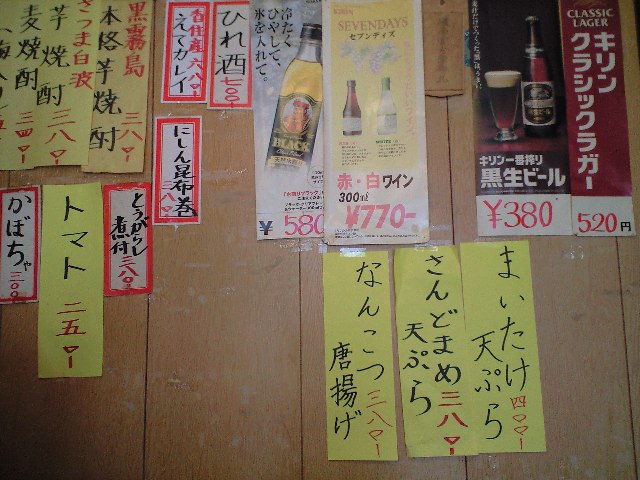 黒霧島
本格芋焼酎
三八〇ー
さつま白波
芋焼酎
三八〇ー
麦焼酎
三四〇ー
香住産
えてカレイ
六八〇ー
ひれ酒
七〇〇ー
にしん昆布巻
三八〇ー
冷たく
ひやして、
氷を入れて。
BLACK
¥580
SEVENDAYS
セブンデイズ
赤・白ワイン
300㎖
¥770-
キリン一番搾り
黒生ビール
¥380
CLASSIC
LAGER
キリン
クラシックラガー
520円
とうがらし
煮付
三八〇ー
トマト
二五〇ー
かぼちゃ
三〇〇
まいたけ
天ぷら
四〇〇ー
さんどまめ
天ぷら
三八〇ー
なんこつ
唐揚げ
三八〇ー